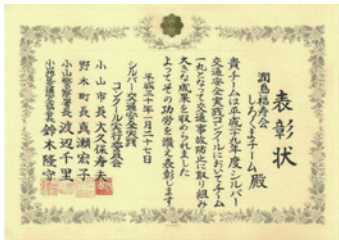 表彰状
潤島福寿会
しろくまチーム 殿
貴チームは平成十九年度シルバー
交通安全実践コンクールにおいてチーム
一丸となって交通事故防止に取り組み
大きな成果を収められました
よってその功労を讃え表彰します
平成二十年一月二十七日
シルバー交通安全実践
コンクール実行委員会
小山市長 大久保寿夫
野木町長 真瀬宏子
小山警察署長 渡辺千里
鈴木隆守